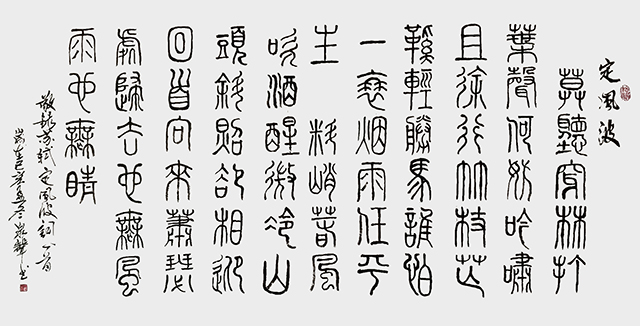 定風波
莫聽穿林打
葉聲何妨吟嘯
且徐行竹杖芒
鞵輕勝馬誰怕
一蓑烟雨任平
生 料峭春風
吹酒醒微冷山
頭斜照卻相迎
回首向來蕭瑟
處歸去也無風
雨也無晴
敬錄苏軾定風波詞一首